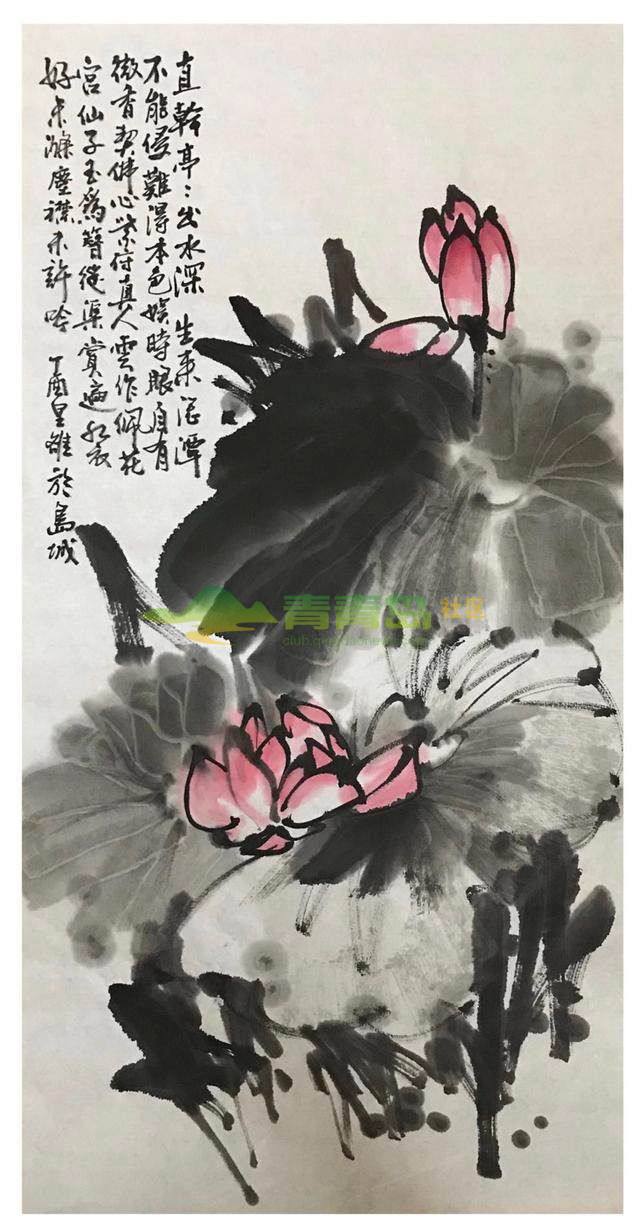 直幹亭〻出水深 生來淤潭
不能侵難得本色娱時眼自有
微香契佛心紫府真人雲作佩花
宫仙子玉為簪從渠賞遍
好未滌塵襟不許吟 丁酉 於島城
青青岛社区